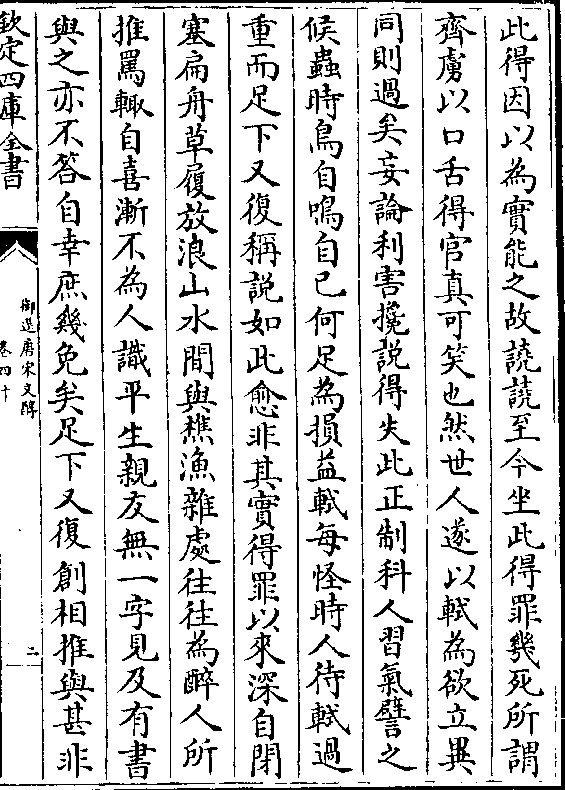 此得因以為實能之故譊譊至今坐此得罪幾死所謂
齊虜以口舌得官真可笑也然世人遂以軾為欲立異
同則過矣妄論利害攙說得失此正制科人習氣譬之
候蟲時鳥自鳴自已何足為損益軾每怪時人待軾過
重而足下又復稱說如此愈非其實得罪以來深自閉
塞扁舟草履放浪山水間與樵漁雜處往往為醉人所
推罵輙自喜漸不為人識平生親友無一字見及有書
與之亦不答自幸庶幾免矣足下又復創相推與甚非
欽定四庫全書
御選唐宋文醇
卷四十
二